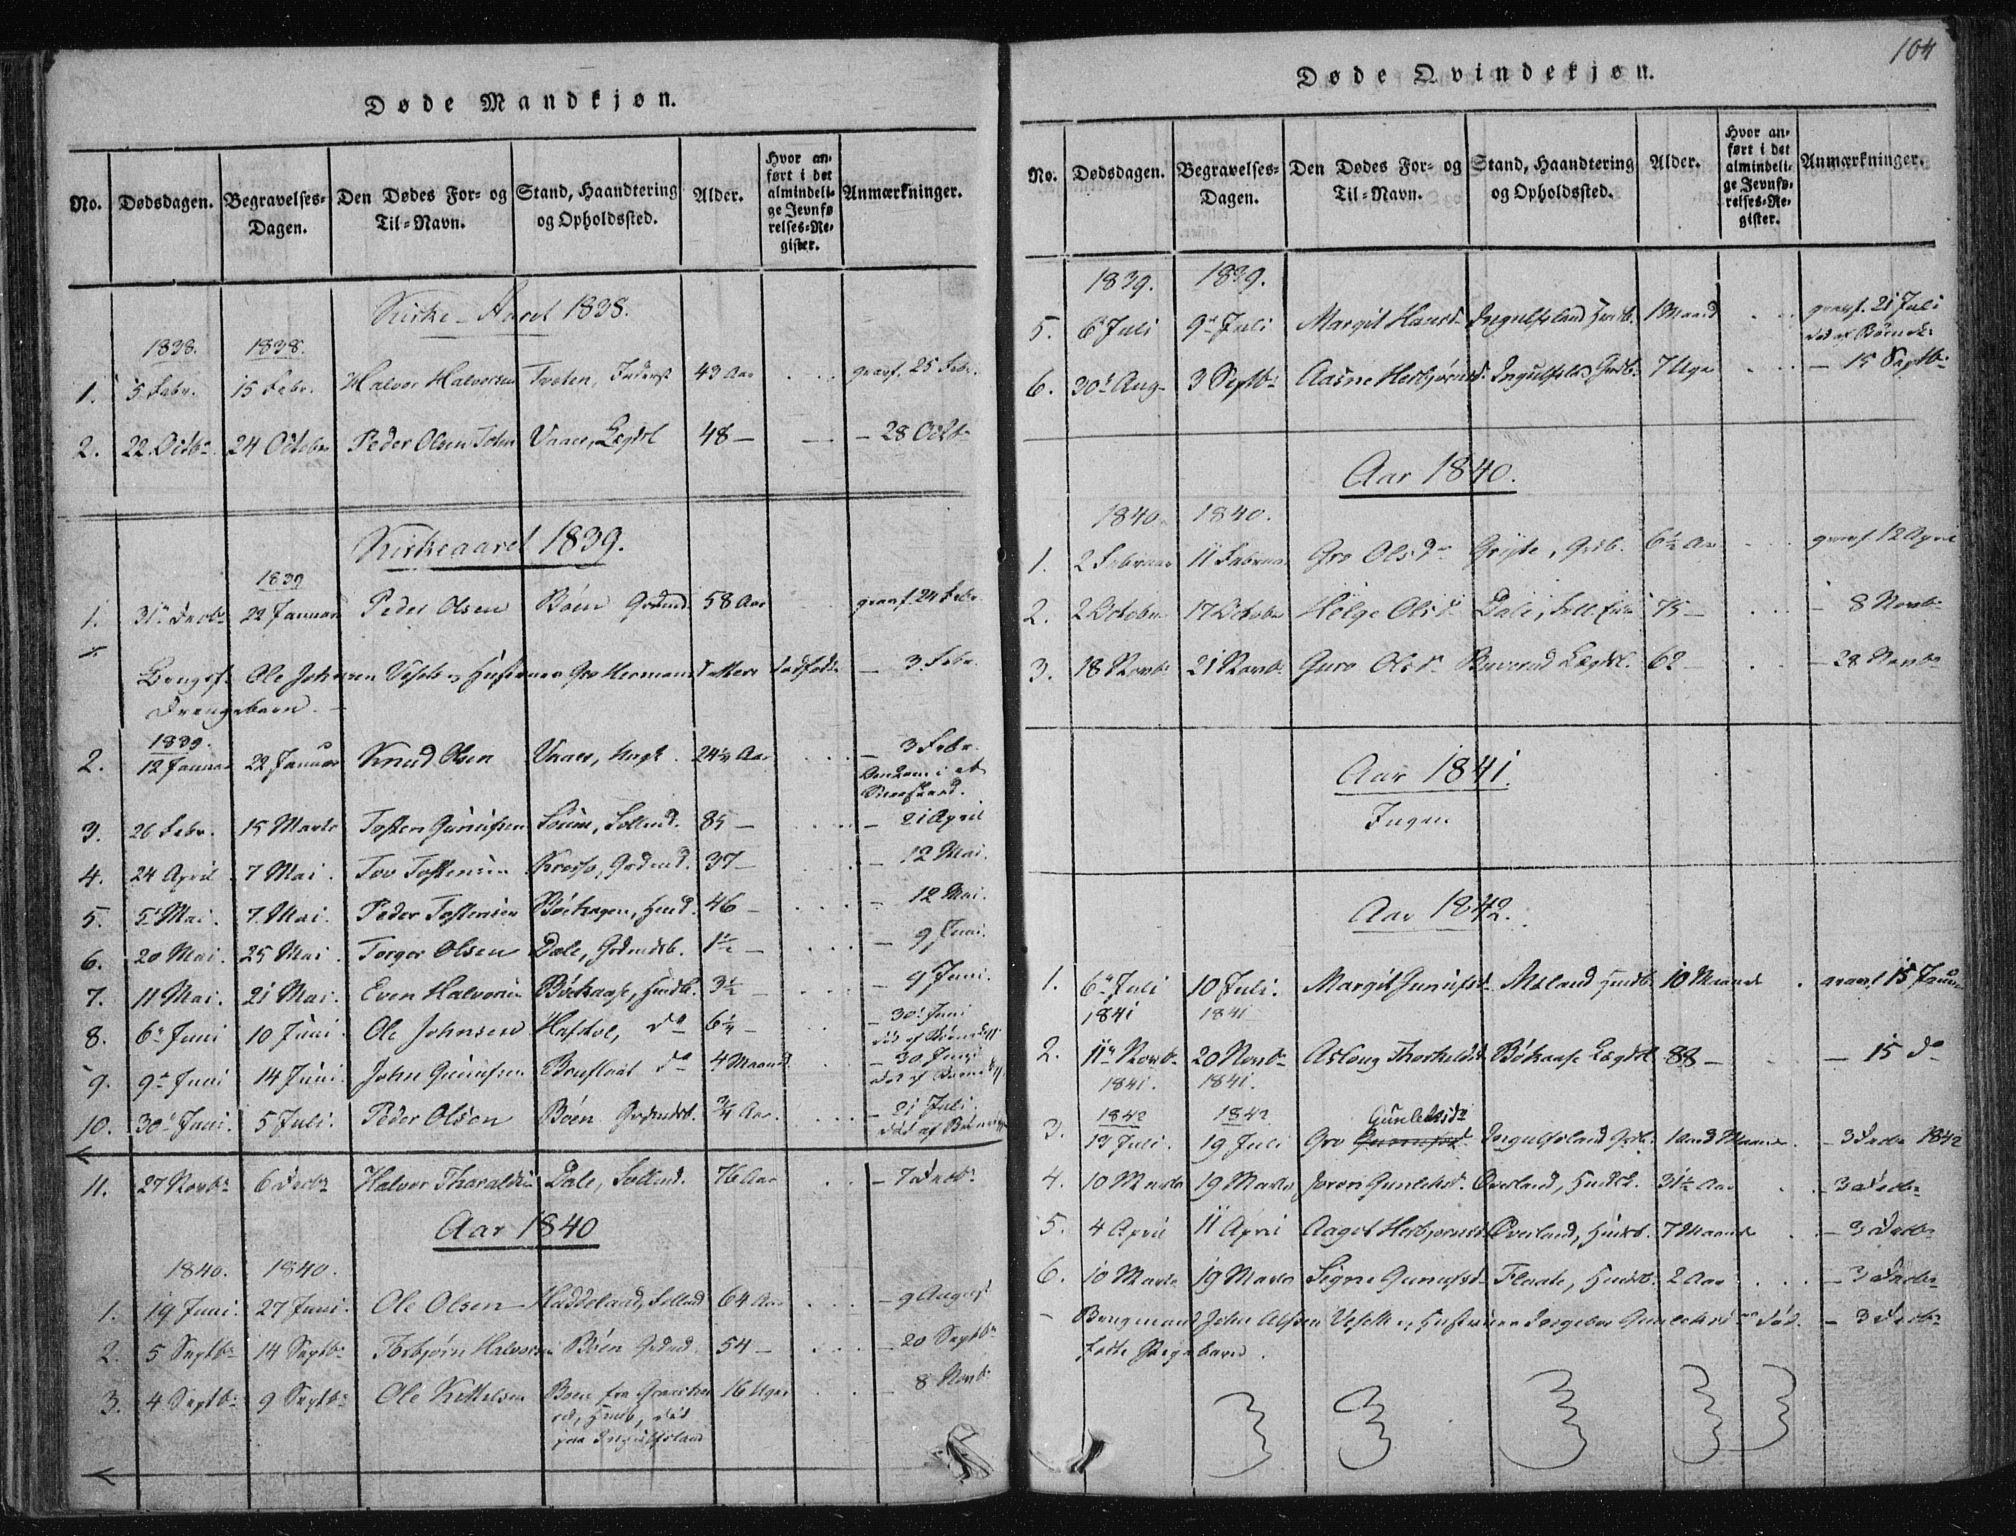 104
Døde Mandkjøn.
No. Dødsdagen. Begravelses-Dagen. Den Dødes For- og Til-Navn. Stand, Haandtering og Opholdssted. Alder. Hvor anført i det almindelige Jevnførelses-Register. Anmærkninger.
Kirke-Aaret 1838.
1838. 1838.
1. 5 Febr. 15 Febr. Halvor Halvorsen Tveten, Inderst 43 Aar gravf. 25 Febr.
2. 22 Octbr 24 October Peder Olsen Vaaer, Lægdsl 48 — — 28 Octbr
Kirkeaaret 1839.
1839
1. 31te Decbr 22 Januar Peder Olsen Böen Grdmd 58 Aar gravf. 24 Febr.
Ole Johnsen Vesetv og Hustrues Gro Hermansdatters dødfødte — 3 Febr.
Drengebarn. —
1839.
2. 12 Januar 22 Januar Knud Olsen Vaaer, Ungk. 24½ Aar — 3 Febr.
3. 26 Febr. 15 Marts Tosten Gunufsen Follmd. 85 — — 21 April
4. 24 April 7 Mai. Tov Tostensen Krosso, Grdmd. 37 — — 12 Mai.
5. 5 Mai. 7. Mai. Peder Tostensen Böehagen, Husmd. 46 — — 12 Mai.
6. 20 Mai. 25 Mai. Torger Olsen Dale, Grdmdsb. 1½ — — 9 Juni.
7. 11 Mai. 21 Mai. Even Halvorsen Böekaase, Husmdsb. 3½ — — 9 Juni.
8. 6te Juni 10 Juni. Ole Johnsen do 6¼ — — 30 Juni
død af Börnek.
9. 9de Juni 14 Juni. John Gunufsen do 4 Maand — 30 Juni
død af Börnek.
10. 30te Juni. 5 Juli. Peder Olsen Böen Grdmdsb. ¾ Aar. — 21 Juli
død af Börnek.
11. 27 Novbr 6 Decbr Halvor Tharaldsen Dale, Follmd. 76 Aar — 7 Decbr
Aar 1840
1840. 1840.
1. 19 Juni. 27 Juni. Ole Olsen Haddeland, Follmd 64 Aar — 9 August
2. 5 Septbr 14 Septbr Torbjörn Halvorsen Böen Grdmd 54 — — 20 Septbr
3. 4 Septbr 9 Septbr Ole Kittelsen Boen fra 16 Uger — 8 Novbr
død
paa Ingulfsland
Døde Qvindekjøn.
No. Dødsdagen. Begravelses-Dagen. Den Dødes For- og Til-Navn. Stand, Haandtering og Opholdssted. Alder. Hvor anført i det almindelige Jevnførelses-Register. Anmærkninger.
1839. 1839.
5. 6 Juli 9de Juli Margit Hansd. Ingulfsland Husb. 1 Maand gravf. 21 Juli
død af Börnek.
6. 30te Aug. 3 Septbr Aasne Herbjörnsd. Ingulfsland Grdb. 7 Uger — 15 Septbr
Aar 1840.
1840. 1840.
1. 2 Februar 11 Februar Gro Olsdr Gröite, Grdb. 6½ Aar gravf. 12 April
2. 2 October 17 October Helge Olsdr Dale, 75 — — 8 Novbr
3. 18 Novbr 21 Novbr Guro Olsdr Lægdsl. 62 — — 28 Novbr
Aar 1841.
Ingen
Aar 1842.
1. 6te Juli 10 Juli. Margit Gunufsd. Mæland Husb. 10 Maaned gravf 15 Januar
1841 1841
2. 11te Novbr 20 Novbr Asloug Thorkildsd Bökaase Lægdsl. 88 — — 15 do
1841. 1841.
1842 1842 Gunleiksdr
3. 13 Juli. 19 Juli Gro Ingulfsland Grdb. 1 Maaned — 3 Decbr 1842
4. 10 Marts 19 Marts Joron Gunleiksd. Överland, Husb. 3½ Aar — 3 Decbr
5. 4 April 11 April Aagot Herbjörnsd Överland, Husb. 7 Maaned — 3 Decbr
6. 10 Marts 19 Marts Signe Gunufsd. Flaate, Husb. 2 Aar — 3 Decbr
— Brugmand John Olsen Vesetv og Hustrues Ingebor Gunleiksd død — 3 Decbr
födte Pigebarn.